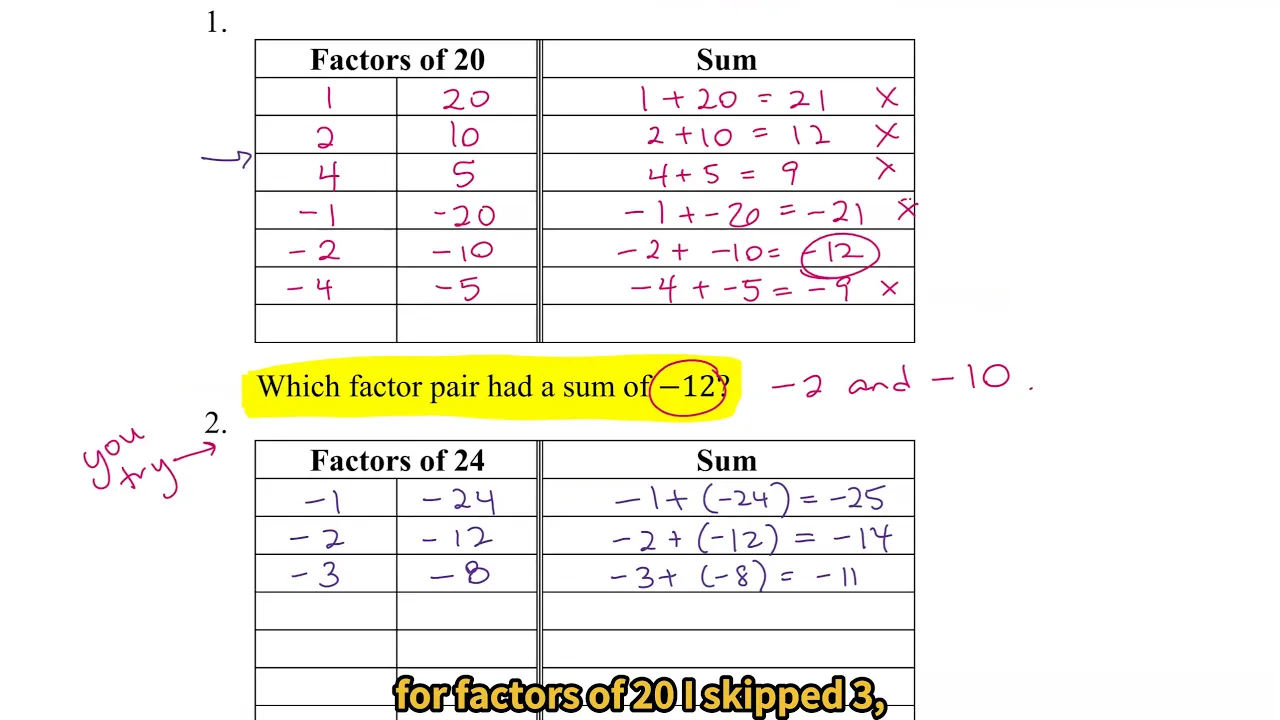 1.
Factors of 20 Sum
1 20 1 + 20 = 21 x
2 10 2 + 10 = 12 x
4 5 4 + 5 = 9 x
-1 -20 -1 + -20 = -21 x
-2 -10 -2 + -10 = -12
-4 -5 -4 + -5 = -9 x
Which factor pair had a sum of −12? -2 and -10.
2.
you
try
Factors of 24 Sum
-1 -24 -1 + (-24) = -25
-2 -12 -2 + (-12) = -14
-3 -8 -3 + (-8) = -11
for factors of 20 I skipped 3,